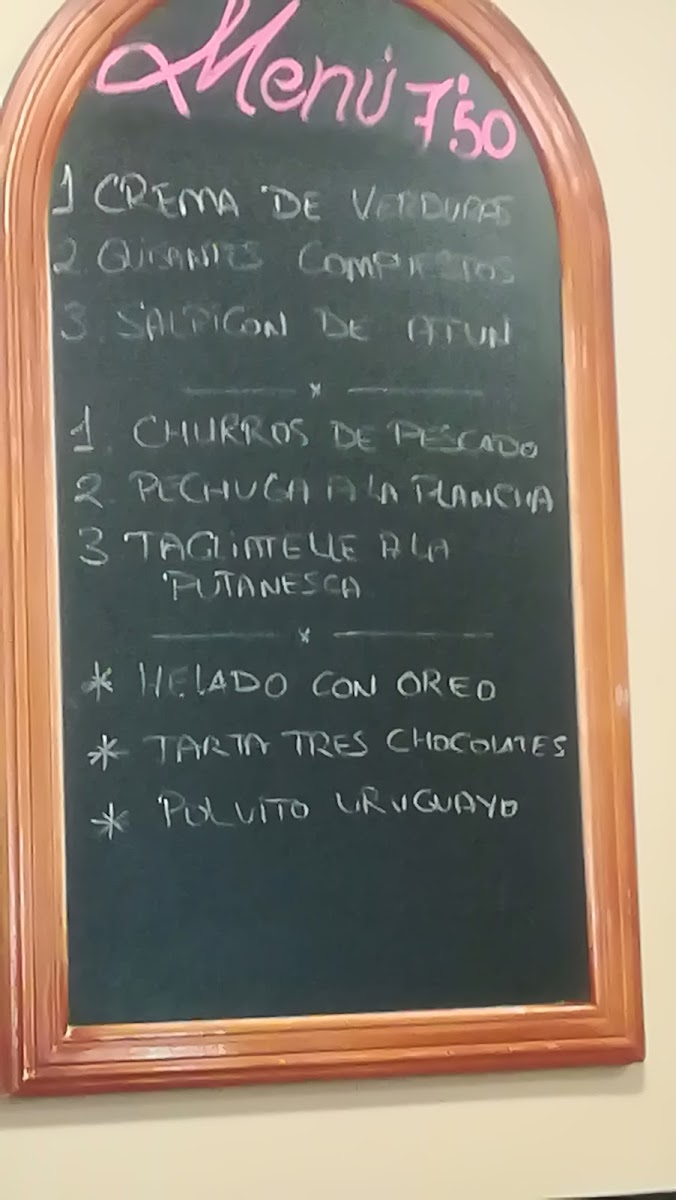 Menú 7'50
1 CREMA DE VERDURAS
2. GUISANTES COMPUESTOS
3. SALPICON DE ATUN
1. CHURROS DE PESCADO
2. PECHUGA A LA PLANCHA
3 TAGLIATELLE A LA
PUTANESCA
* HELADO CON OREO
* TARTA TRES CHOCOLATES
* POLVITO URUGUAYO